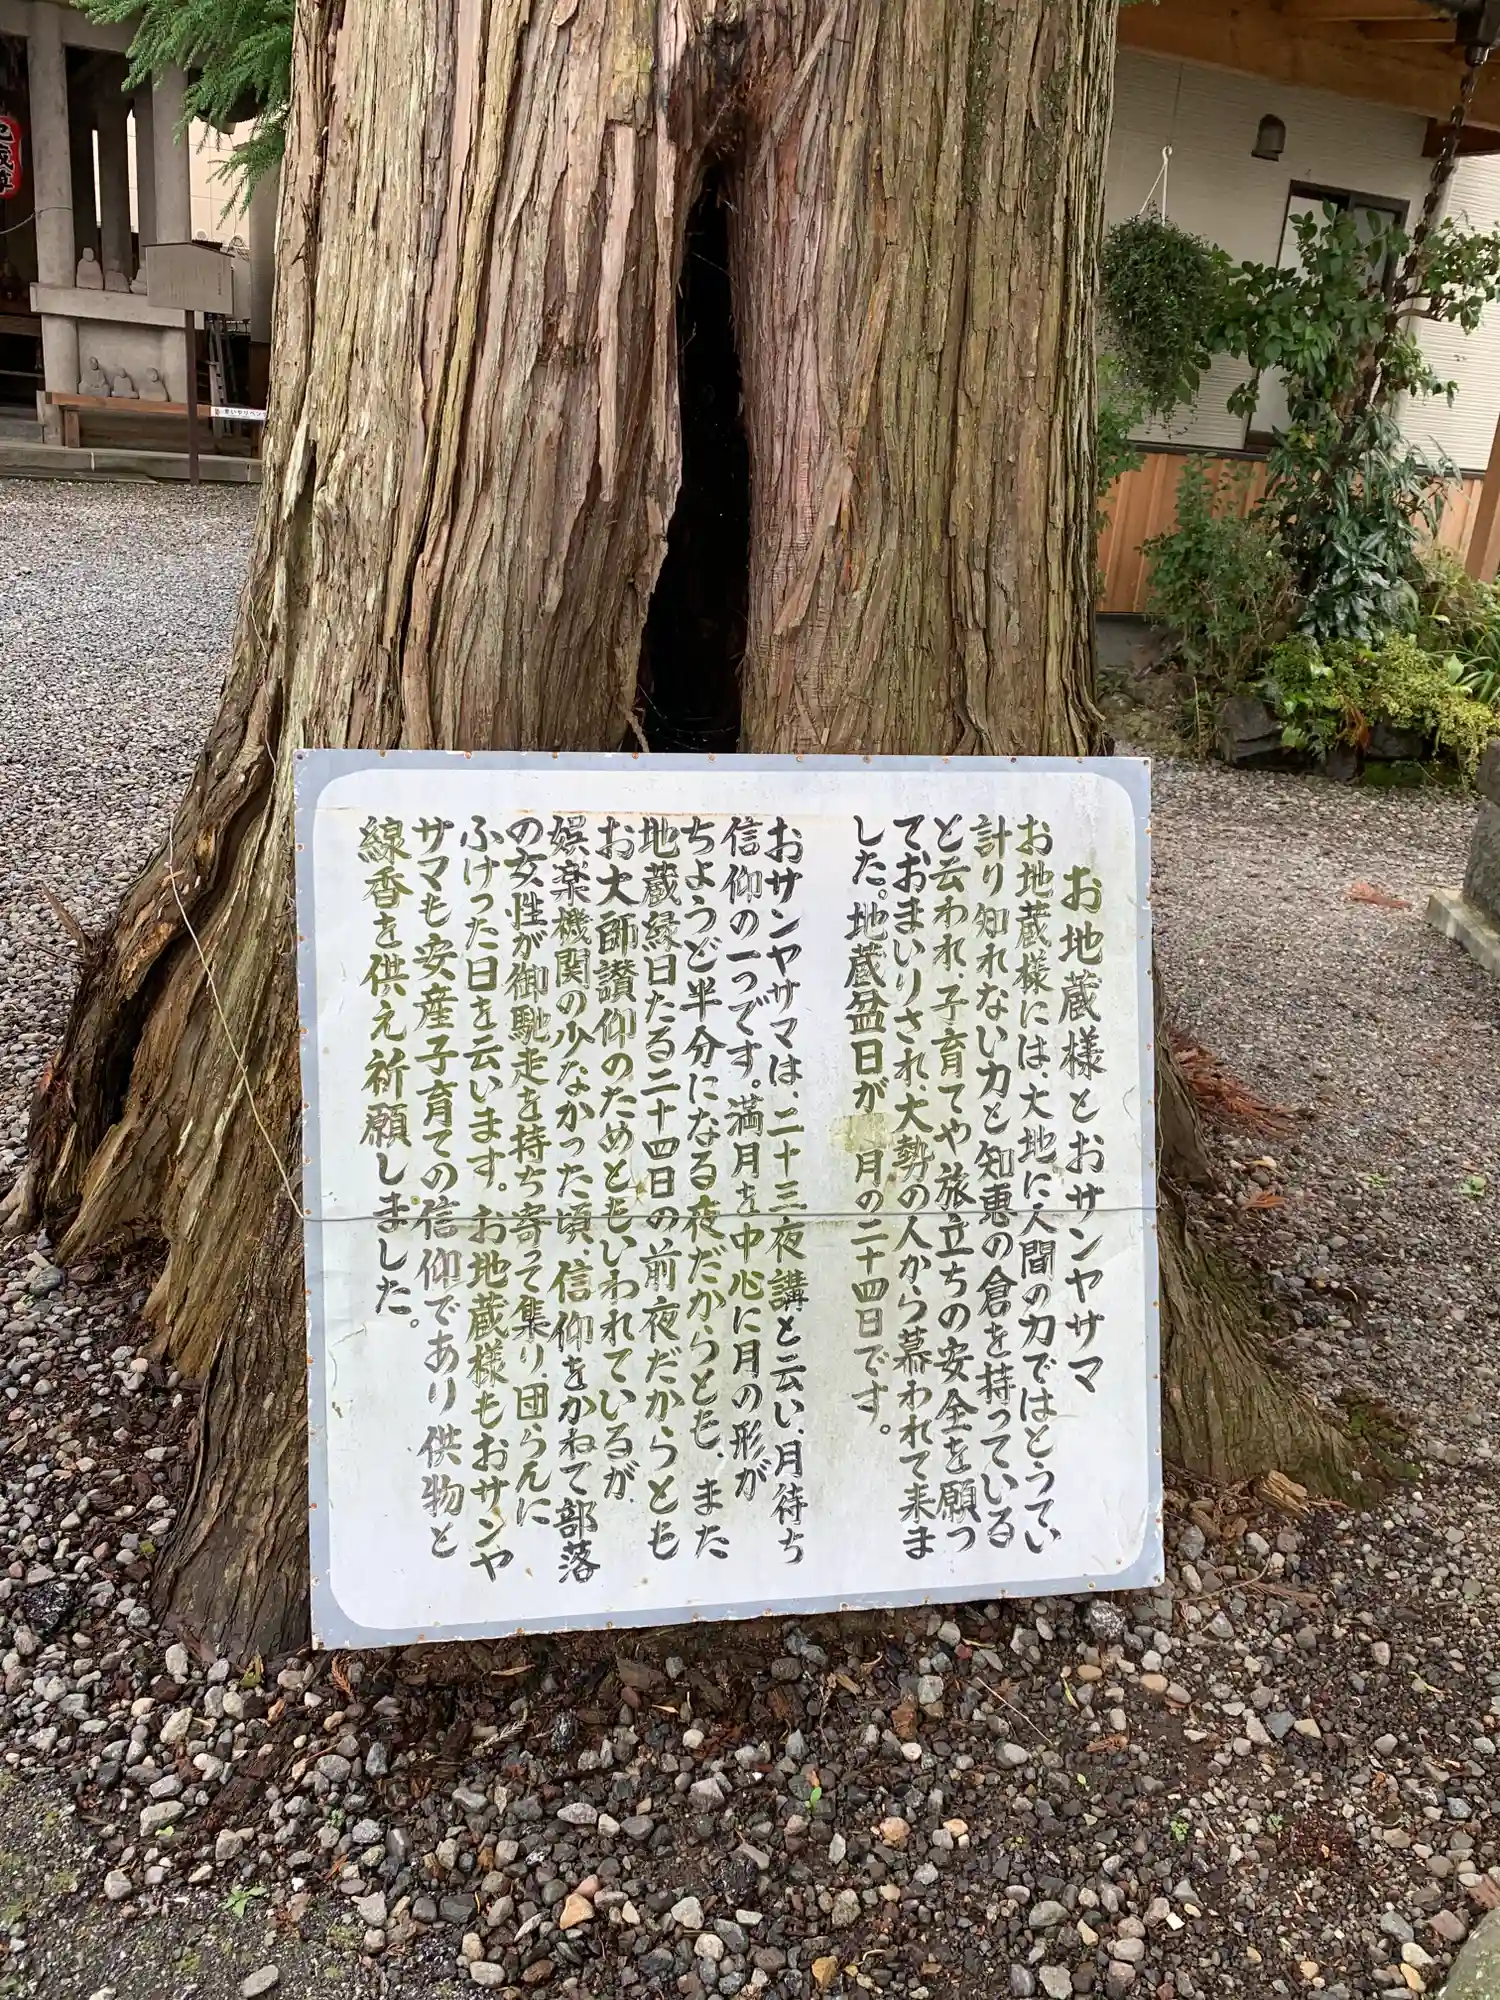 お地蔵様とおサンヤサマ
お地蔵様には大地に人間の力ではとうてい
計り知れない力と知恵の倉を持っている
と云われ、子育てや旅立ちの安全を願っ
ておまいりされ、大勢の人から慕われて来ま
した。地蔵盆日が 月の二十四日です。
おサンヤサマは、二十三夜講と云い、月待ち
信仰の一つです。満月を中心に月の形が
ちようど半分になる夜だからとも、また
地蔵縁日たる二十四日の前夜だからとも
お大師讃仰のためともいわれているが
娯楽機関の少なかった頃、信仰をかねて部落
の女性が御馳走を持ち寄って集り、団らんに
ふけった日を云います。お地蔵様もおサンヤ
サマも安産子育ての信仰であり供物と
線香を供え祈願しました。